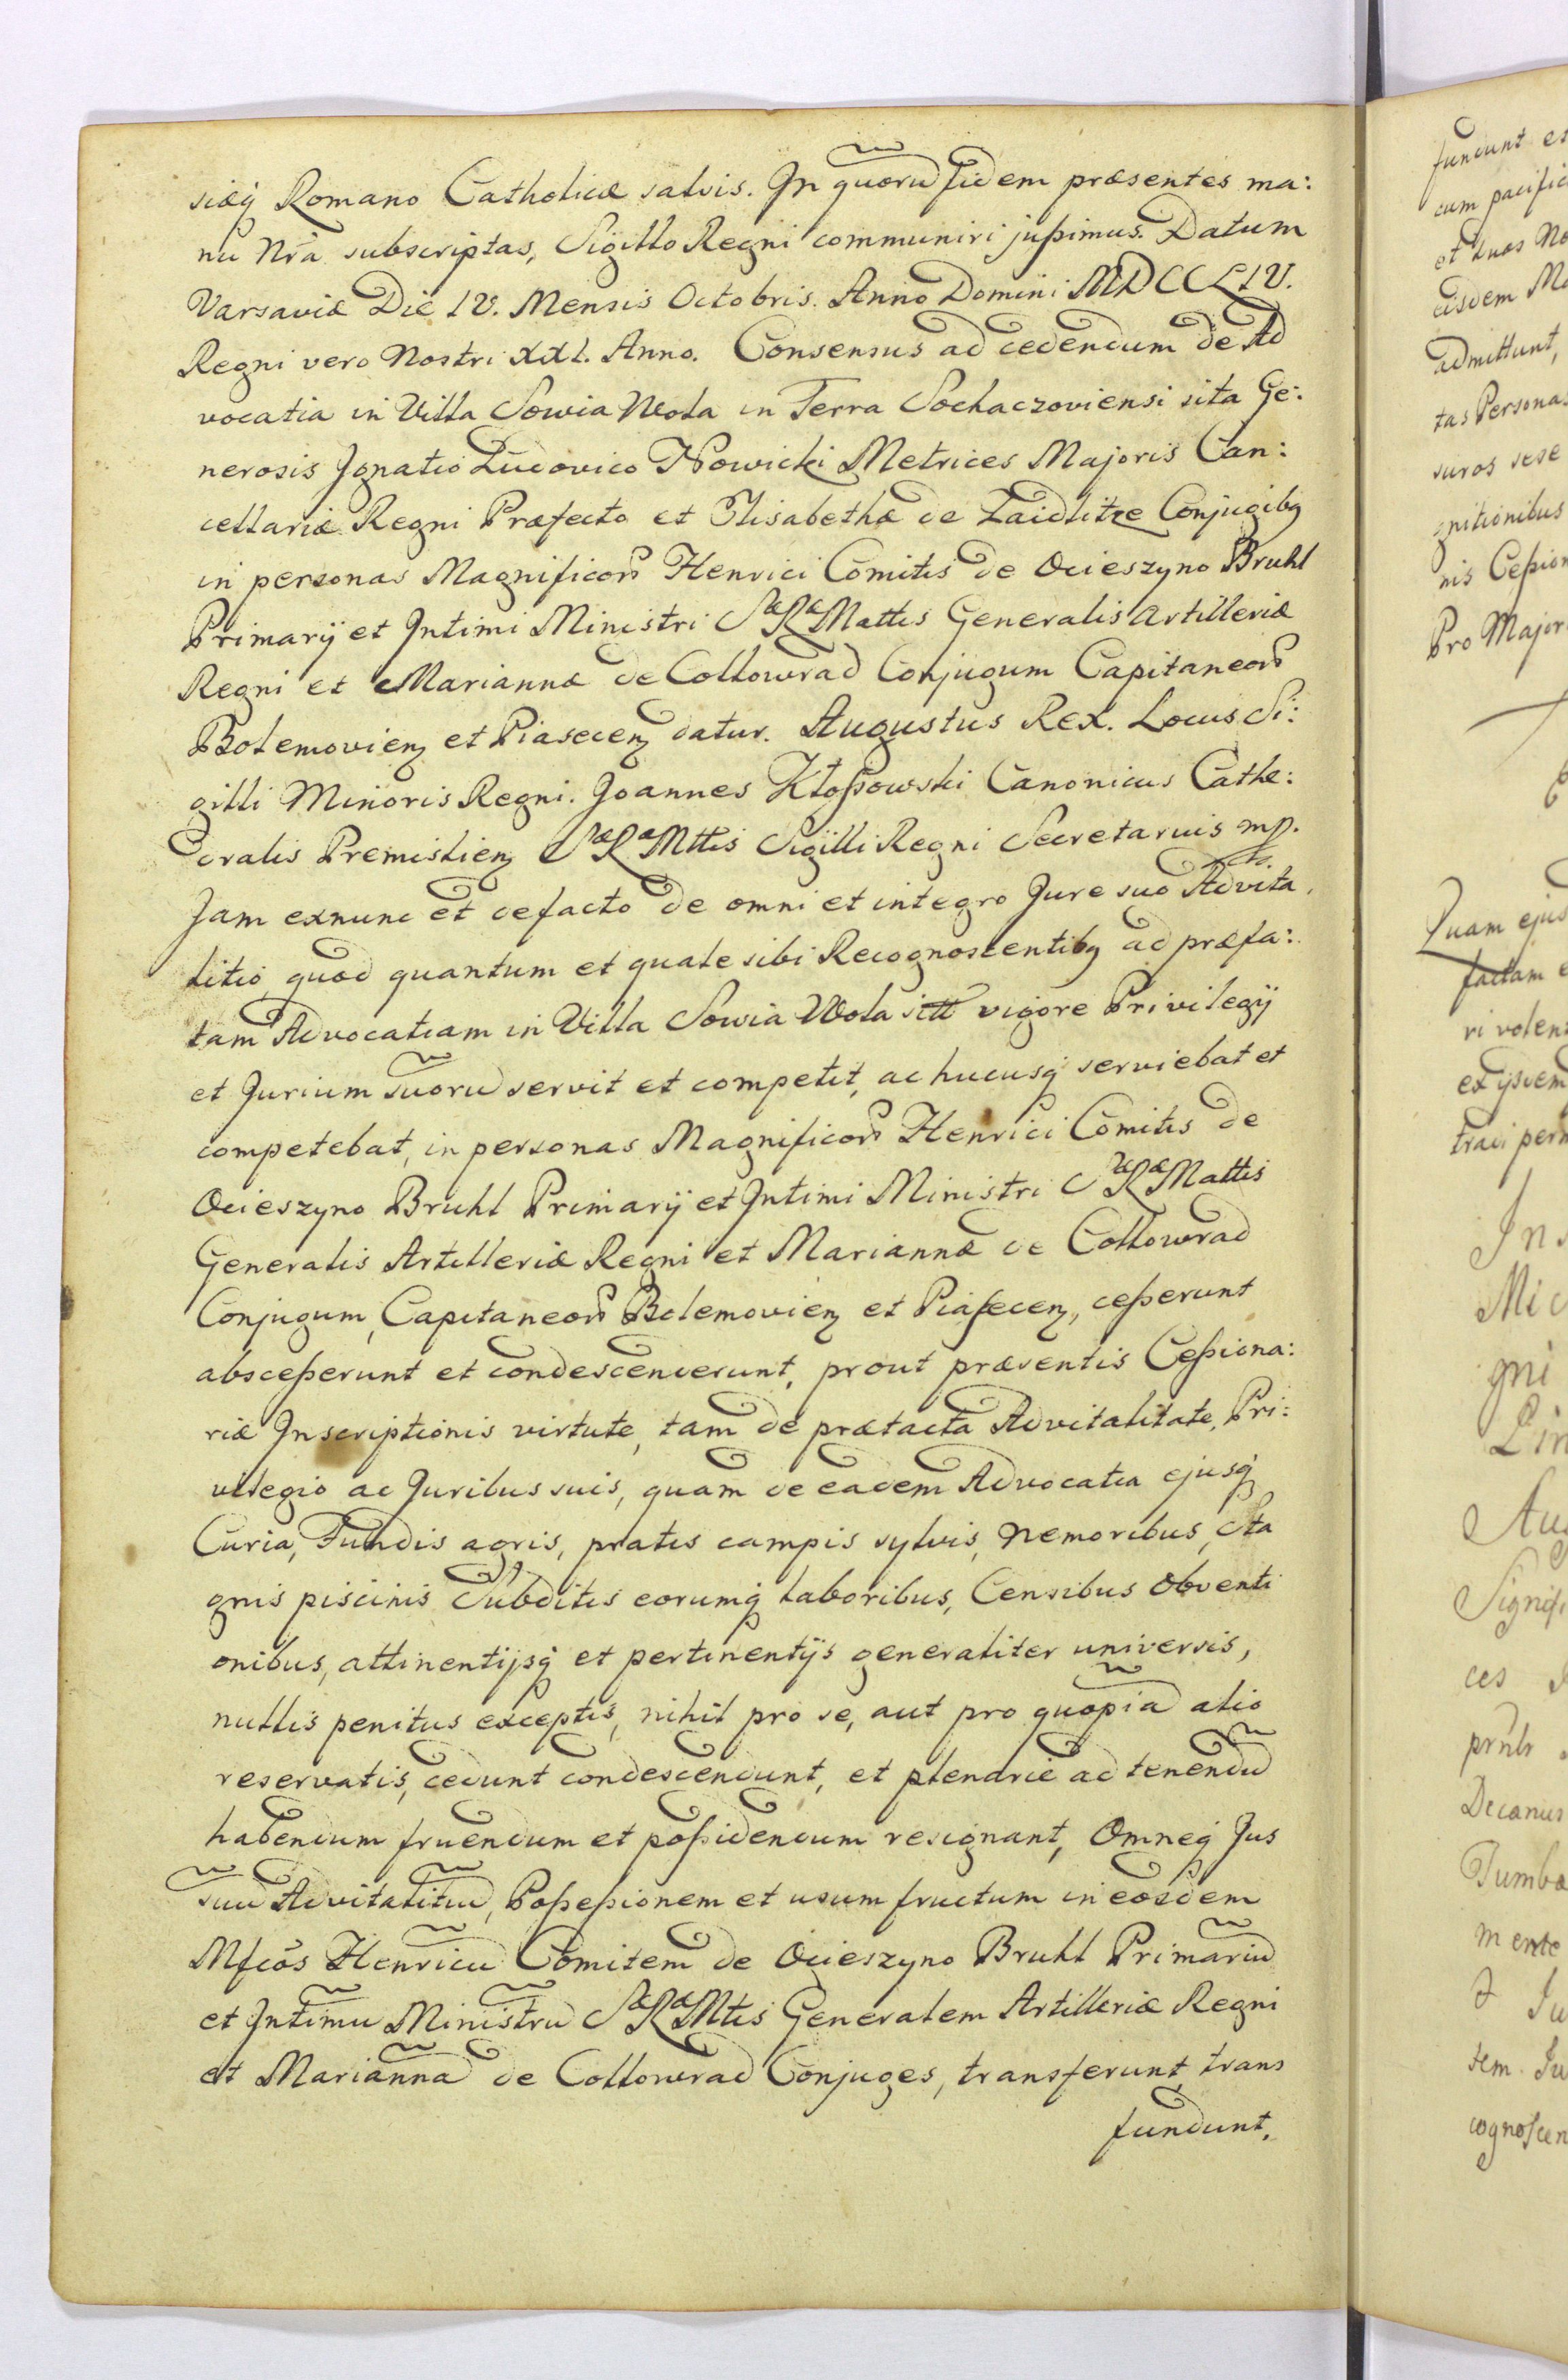 siæq́ Romano Catholicæ salvis. In quorū fidem præsentes ma:
nu Nr̃a subscriptas, Sigillo Regni communiri jußimus. Datum
Varsaviæ Die IV. Mensis Octobris. Anno Domini MDCCLIV.
Regni vero Nostri XXI. Anno. Consensus ad cedendum de Ad
vocatia in Villa Sowia Wola in Terra Sochaczoviensi sita Ge:
nerosis Ignatio Ludovico Nowicki Metrices Majoris Can:
cellariæ Regni Præfecto et Elisabethæ de Zaidlitze Conjugibq
in personas Magnificorp Henrici Comitis de Ocieszyno Bruhl
Primarij et Intimi Ministri SæRæMattis Generalis Artilleriæ
Regni et Mariannæ de Collowrad Conjugum Capitaneorp
Bolemovienz et Piasecenz datur. Augustus Rex. Locus Si:
gilli Minoris Regni. Joannes Kłoßowski Canonicus Cathe:
dralis Premislienz SæRæMttis Sigilli Regni Secretarius mp.
Jam exnunc et defacto de omni et integro Jure suo Advita
litio quod quantum et quale sibi Recognoscentibq ad præfa:
tam Advocatiam in Villa Sowia Wola vigore Privilegij
et Jurium suorū servit et competit, ac hucusq́ serviebat et
competebat, in personas Magnificorp Henrici Comitis de
Ocieszyno Bruhl Primarij et Intimi Ministri SæRæMattis
Generalis Artilleriæ Regni et Mariannæ de Collowrad
Conjugum, Capitaneorp Bolemovienz et Piasecenz, ceßerunt
absceßerunt et condescenderunt, prout præsentis Ceßiona:
riæ Inscriptionis virtute, tam de prætacta Advitalitate, Pri:
vilegio ac Juribus suis, quam de eadem Advocatia ejusq́
Curia, Fundis agris, pratis campis sylvis, nemoribus, Sta
gnis piscinis Subditis eorumq́ laboribus, Censibus obventi
onibus, attinentijsq́ et pertinentijs generaliter universis,
nullis penitus exceptis, nihil pro se, aut pro quopiā alio
reservatis, cedunt condescendunt, et plenarie ad tenendū
habendum fruendum et poßidendum resignant, Omneq́ Jus
suū Advitalitiū, Poßeßionem et usum fructum in eosdem
Mfcōs Henricū Comitem de Ocieszyno Bruhl Primariū
et Intimū Ministrū SæRæMtis Generalem Artilleriæ Regni
et Mariannā de Collowrad Conjuges, transferunt, trans
fundunt,
fundunt
cum pacific
et duas
eisdem
admittunt,
tas Personas
suros sese
gnitionibus
nis Ceßion
Pro Major
Quam ejus
factam
ri volens
ex ijsdem
tradi
In
Mic
gni
Lin
Aug
Signifi
ces
Decanus
Tumba
mente
Ju
tem
cognoscen